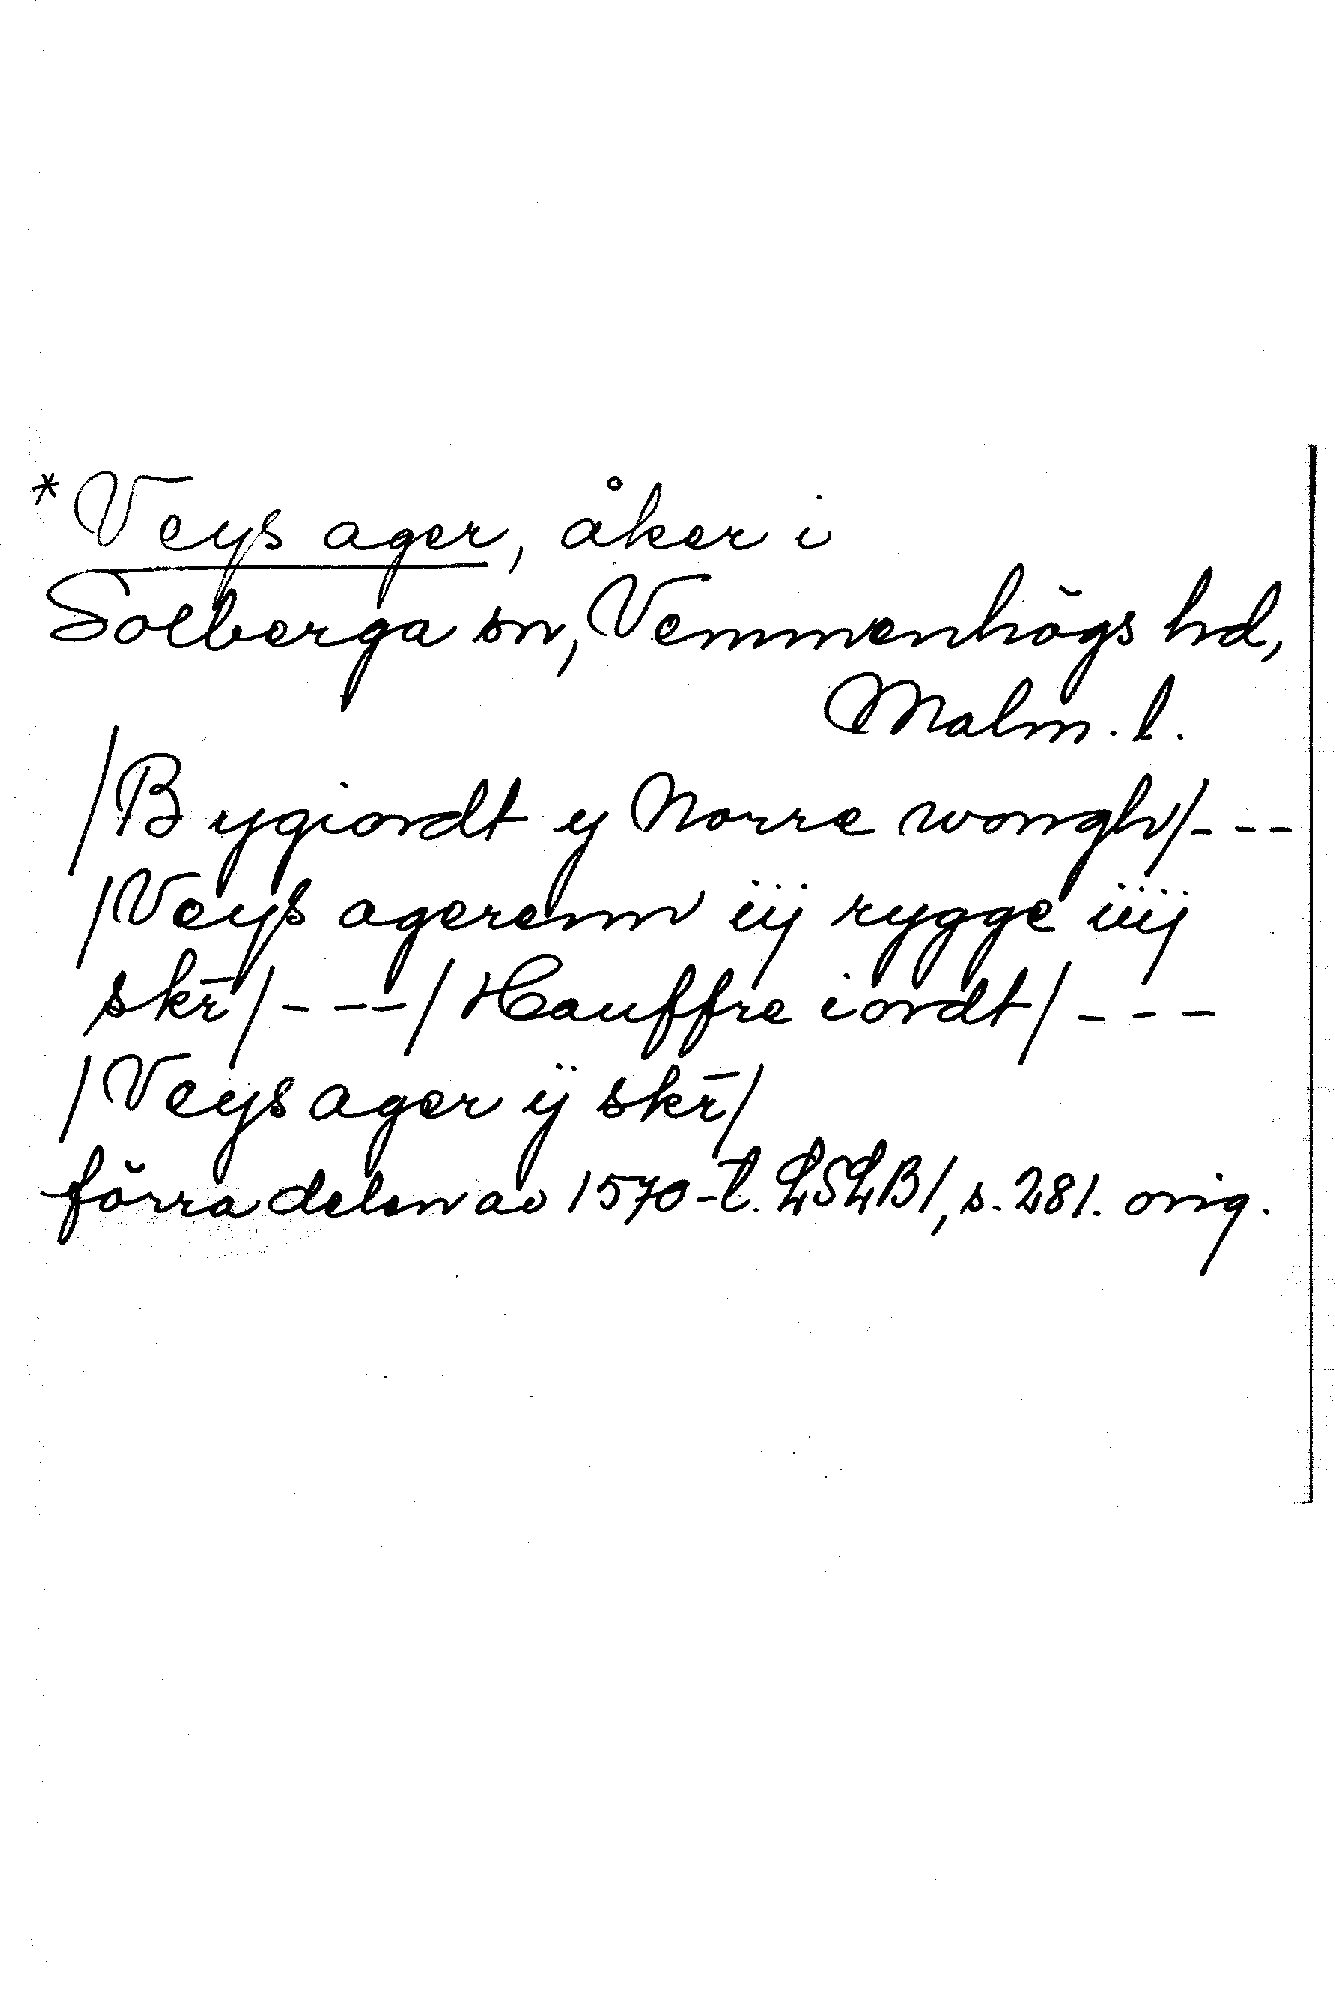 *Veys ager, åker i
Solberga sn, Vemmenhögs hd,
Malm. l.
/Bygiordt y Norre wongh/---
/Veys agerenn iij rygge iiij
skr̄/---/Hauffre iordt/---
/Veys ager ij skr̄/
förra delen av 1570-t. LSLB1, s. 281. orig.